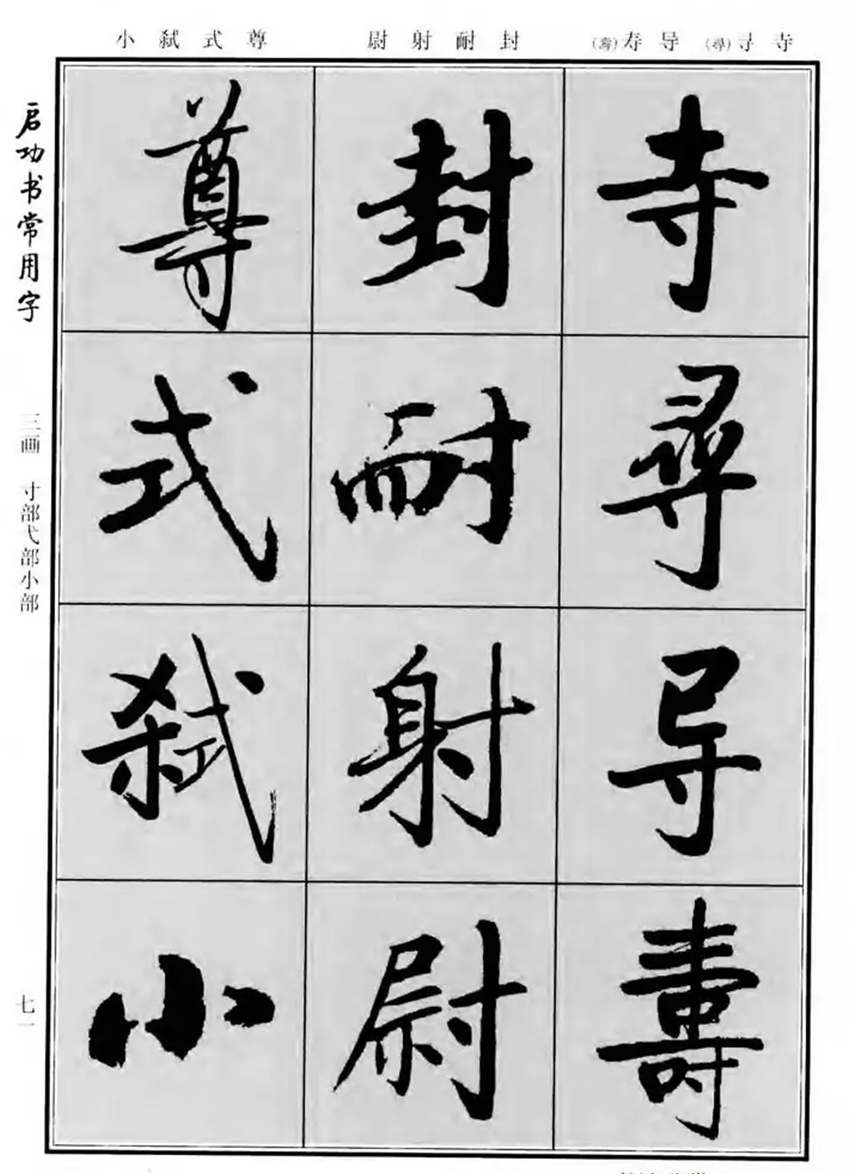 寺寻(尋)导寿(壽)
封耐射尉
尊式弑小
寺尋导壽
封耐射尉
尊式弑小
启功书常用字
三画 寸部弋部小部
七一